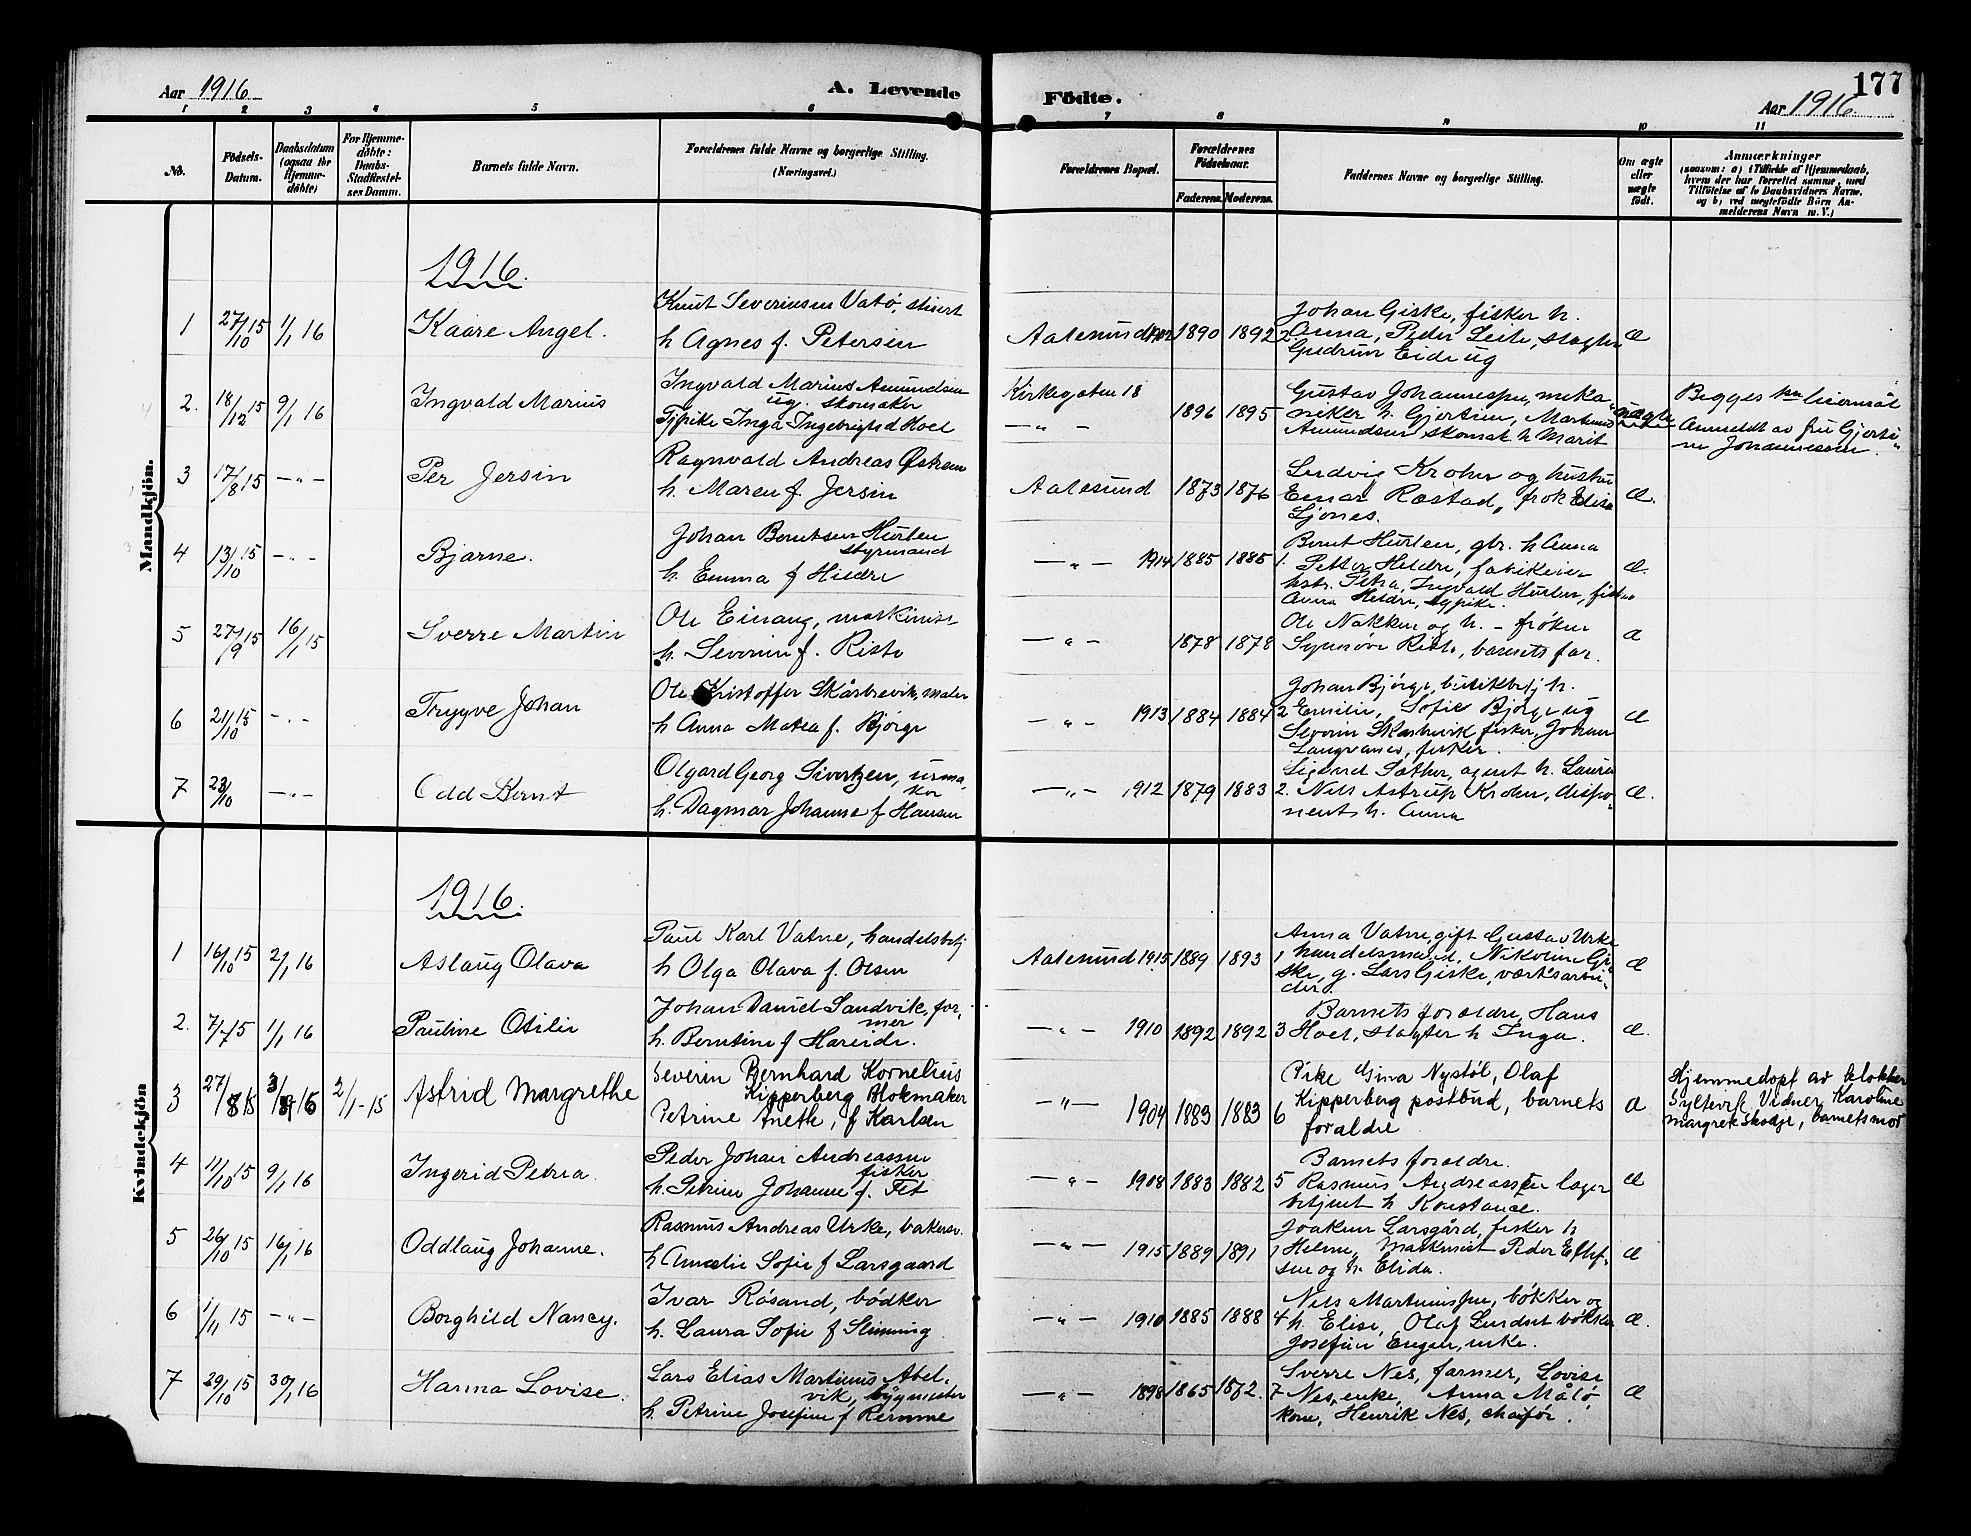 Aar 1916
A. Levende Födte.
177
Aar 1916
1 2 3 4 5 6 7 8 9 10 11
No.
Födsels-Datum.
Daabsdatum (ogsaa for Hjemmedöbte)
For Hjemmedöbte: Daabs-Stadfæstelses Datum.
Barnets fulde Navn.
Forældrenes fulde Navne og borgerlige Stilling. (Næringsvei.)
Forældrenes Bopæl.
Forældrenes Födselsaar.
Faderens. Moderens.
Faddernes Navne og borgerlige Stilling.
Om ægte eller uægte födt.
Anmærkninger
(saasom: a) i Tilfælde af Hjemmedaab, hvem der har forrettet samme, med Tilföielse af to Daabsvidners Navne. og b) ved uægtefödte Börn Anmelderens Navn m. V.)
Mandkjön.
1916.
1 27/10 15 1/1 16 Kaare Angel.
Knut Severinsen Vatö,
h Agnes f. Petersen
Aalesund 1890 1892 2
Johan Giske, fisker h.
Anna, Peder Leite, slagter
Gudrun Eide ug
æ
2. 18/12 15 9/1 16 Ingvald Marius
Ingvald Marius Amundsen
ug. skomaker
Pike Inga Ingebrigtsd Hoel
Kirkegaten 18
— „ — 1896 1895
Gustav Johannessen, meka-
niker h. Gjertine, Martinus
Amundsen skomak h Marit
uægte
Begges 1ste leiermål
Anmeldt av fru Gjerti-
ne Johannessen.
3 17/8 15 — „ — Per Jersin
Ragnvald Andreas
h. Maren f. Jersin
Aalesund 1873 1876
Ludvig Krohn og hustru
Einar Ræstad, frok Elisa
Ljones.
æ.
4 13/10 15 — „ — Bjarne.
Johan Berntsen Hurlen
styrmand
h. Emma f Hildre
— „ — 1914 1885 1885 1.
Bernt Hurlen, gbr. h Anna
Petter Hildre, fabrikeier
hstr. Petra, Ingvald Hurlen, fisker
Anna Hildre, sypike.
æ.
5 27/9 15 16/1 15 Sverre Martin
Ole Einang, maskinist
h. Severine f. Riste
— „ — 1878 1878
Ole Nakken og h. - fröken
Synnöve Riste, barnets far.
æ
6 21/10 15 — „ — Trygve Johan
Ole Kristoffer Skårbrevik, maler
h Anna Matea f. Bjørge
— „ — 1913 1884 1884 2
Johan Bjørge, butikbetj h.
Emilie, Sofie Bjørge ug
Severin Skarbrevik fisker, Johan
Langvanes, fisker.
æ
7 23/10 — „ — Odd Bernt
Olgard Georg Sivertzen, urma-
ker
h. Dagmar Johanne f Hansen
— „ — 1912 1879 1883 2.
Sigurd Sæther, agent h. Laura
Nils Astrup Krohn, dispo-
nent h. Anna
æ.
Kvindekjön
1916.
1 16/10 15 2/1 16 Aslaug Olava
Paul Karl Vatne, handelsbetj
h Olga Olava f. Olsen
Aalesund 1915 1889 1893 1
Anna Vatne, gift Gustav Urke
handelsmand, Nikoline Gi-
ske, g. Lars Giske, værftsarbei-
der.
æ
2. 7/7 15 1/1 16 Pauline Otilie
Johan Daniel Sandvik, for-
mer
h. Berntine f Hareide.
— „ — 1910 1892 1892 3
Barnets forældre, Hans
Hoel, slagter h Inga.
æ.
3 27/8 15 3/1 16 2/1-15 Astrid Margrethe
Severin Bernhard Kornelius
Kipperberg Blokmaker
Petrine Anethe, f Karlsen
— „ — 1904 1883 1883 6
Pike Gina Nystöl, Olaf
Kipperberg postbud, barnets
foraldre
æ
Hjemmedöpt av klokker
Syltevik Vidner, Karoline
margrete Skodje, barnets mor
4 11/10 15 9/1 16 Ingerid Petria.
Peder Johan Andreassen
fisker
h. Petrine Johanne f. Fet
— „ — 1908 1883 1882 5
Barnets foraldre.
Rasmus Andreassen lager
betjent h Konstance.
æ
5 26/10 15 16/1 16 Oddlaug Johanne.
Rasmus Andreas Urke, bakersv.
h Amalie Sofie f Larsgaard
— „ — 1915 1889 1891 1
Joakim Larsgård, fisker h
Helene, Maskinist Peder Ellef-
sen og h. Elida.
æ
6 1/11 15 — „ — Borghild Nancy.
Ivar Rösand, bödker
h. Laura Sofie f Slinning.
— „ — 1910 1885 1888 4
Nils Martinussen, bökker og
h. Elise, Olaf Lindset bökker
Josefine Engen, enke.
æ.
7 29/10 15 30/1 16 Hanna Lovise.
Lars Elias Martinus Abel-
vik, bygmester
h. Petrine Josefine f Remme
— „ — 1898 1865 1872. 7
Sverre Nes, farmer, Lovise
Nes, enke, Anna Målö
kone, Henrik Nes, chafør.
æ